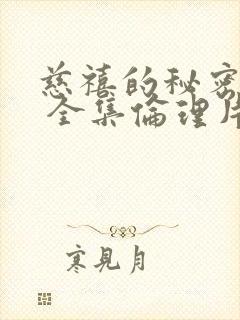 慈禧的秘密
全集倫理片
寒見月